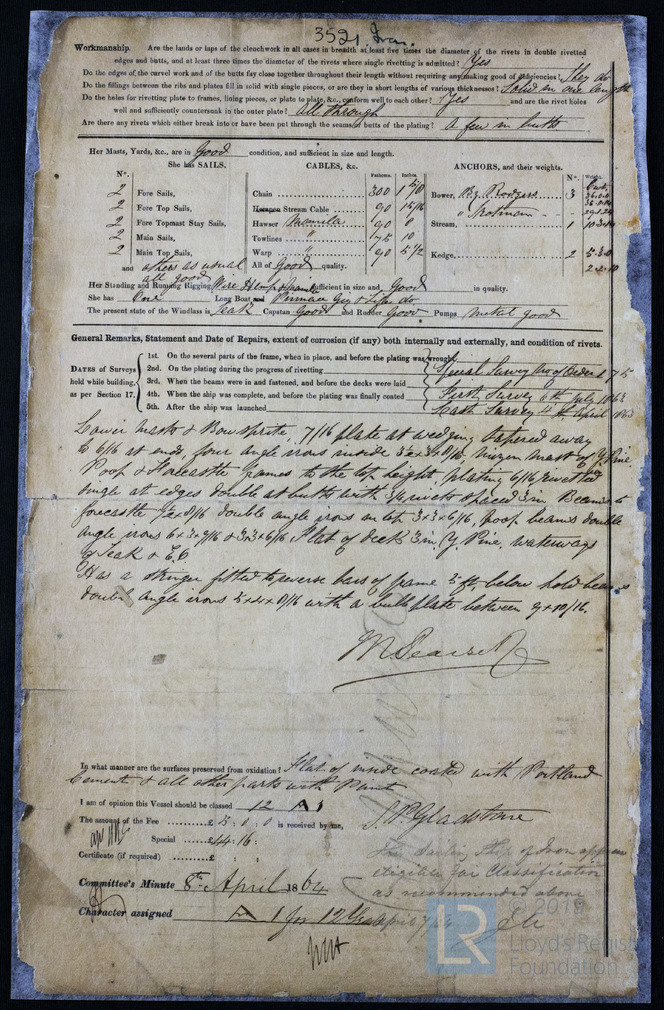 3521 Iron.
Workmanship. Are the lands or laps of the clenchwork in all cases in breadth at least five times the diameter of the rivets in double rivetted
edges and butts, and at least three times the diameter of the rivets where single rivetting is admitted? Yes
Do the edges of the carvel work and of the butts fay close together throughout their length without requiring any making good of deficiencies? They do
Do the fillings between the ribs and plates fill in solid with single pieces, or are they in short lengths of various thicknesses? Solid in one length
Do the holes for rivetting plate to frames, lining pieces, or plate to plate, &c., conform well to each other? Yes and are the rivet holes
well and sufficiently countersunk in the outer plate? All through
Are there any rivets which either break into or have been put through the seams or butts of the plating? A few in butts
Her Masts, Yards, &c., are in Good condition, and sufficient in size and length.
She has SAILS. CABLES, &c. ANCHORS, and their weights.
N°. Fathoms. Inches. N°. Weights.
2 Fore Sails, Chain 300 Bower, 3
2 Fore Top Sails, Hempen Stream Cable 90 15/16
2 Fore Topmast Stay Sails, Hawser Manilla 90 Stream, 1
2 Main Sails, Towlines " 75 10
2 Main Top Sails, Warp " 90 5 1/2 Kedge, 2
and others as usual All of Good quality.
all good
Her Standing and Running Rigging Wire Hemp & Manilla sufficient in size and Good in quality.
She has One Long Boat and Pinnace Gig &
The present state of the Windlass is Teak Capstan Good and Rudder Good Pumps Metal good
General Remarks, Statement and Date of Repairs, extent of corrosion (if any) both internally and externally, and condition of rivets.
DATES of Surveys held while building, as per Section 17.
1st. On the several parts of the frame, when in place, and before the plating was wrought
2nd. On the plating during the progress of rivetting Special Survey No of Order 175
3rd. When the beams were in and fastened, and before the decks were laid
4th. When the ship was complete, and before the plating was finally coated First Survey 6th July 1863
5th. After the ship was launched Last Survey 4th April
Lower masts & Bowsprit, 7/16 plate at wedging tapered away
to 6/16 at ends, four angle irons inside mizen mast of Y. Pine.
Poop & Forecastle frames to the top height, plating 6/16 rivetted
single at edges double at butts with 3/4 rivets spaced 3 in Beams to
forecastle double angle irons on top 3 x 3 x 6/16, poop beams double
angle irons 6 x 3 x 9/16 & 3 x 3 x 6/16 Flat of deck 3 in Y. Pine, waterways
of Teak &
Has a stringer fitted to reverse bars of frame 5 ft. below hold beams
double angle irons 5 x 4 x 8/16 with a bulb plate between 9 x 10/16.
In what manner are the surfaces preserved from oxidation? Flat of inside coated with Portland
Cement & all other parts with Paint
I am of opinion this Vessel should be classed 12 A 1
The amount of the Fee 5 : 0 : 0 is received by me, Gladstone
Special 44 : 16 :
Certificate (if required) : :
The Sailing Ship of Iron appears
eligible for Classification
as recommended above
Committee's Minute 8th April 1864
Character assigned A 1 for 12 Years
© 2019
LR
Lloyd's Regist
Foundation